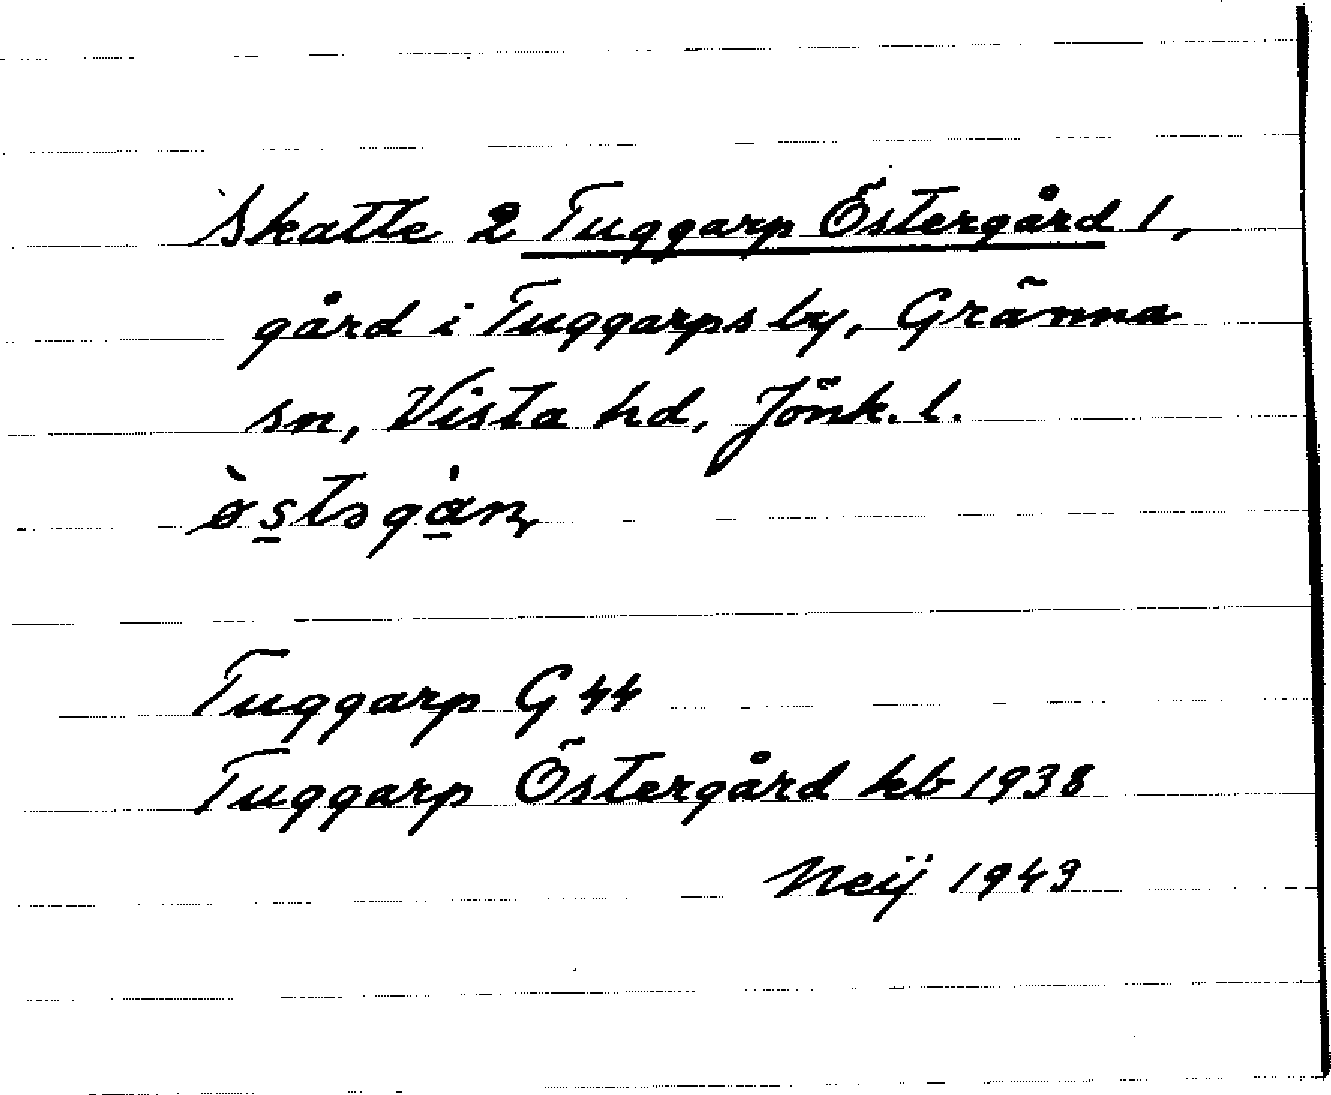 Skatte 2 Tuggarp Östergård 1,
gård i Tuggarps by, Gränna
sn, Vista hd, Jönk. l.
Tuggarp G 44
Tuggarp Östergård kb 1938
Neij 1949